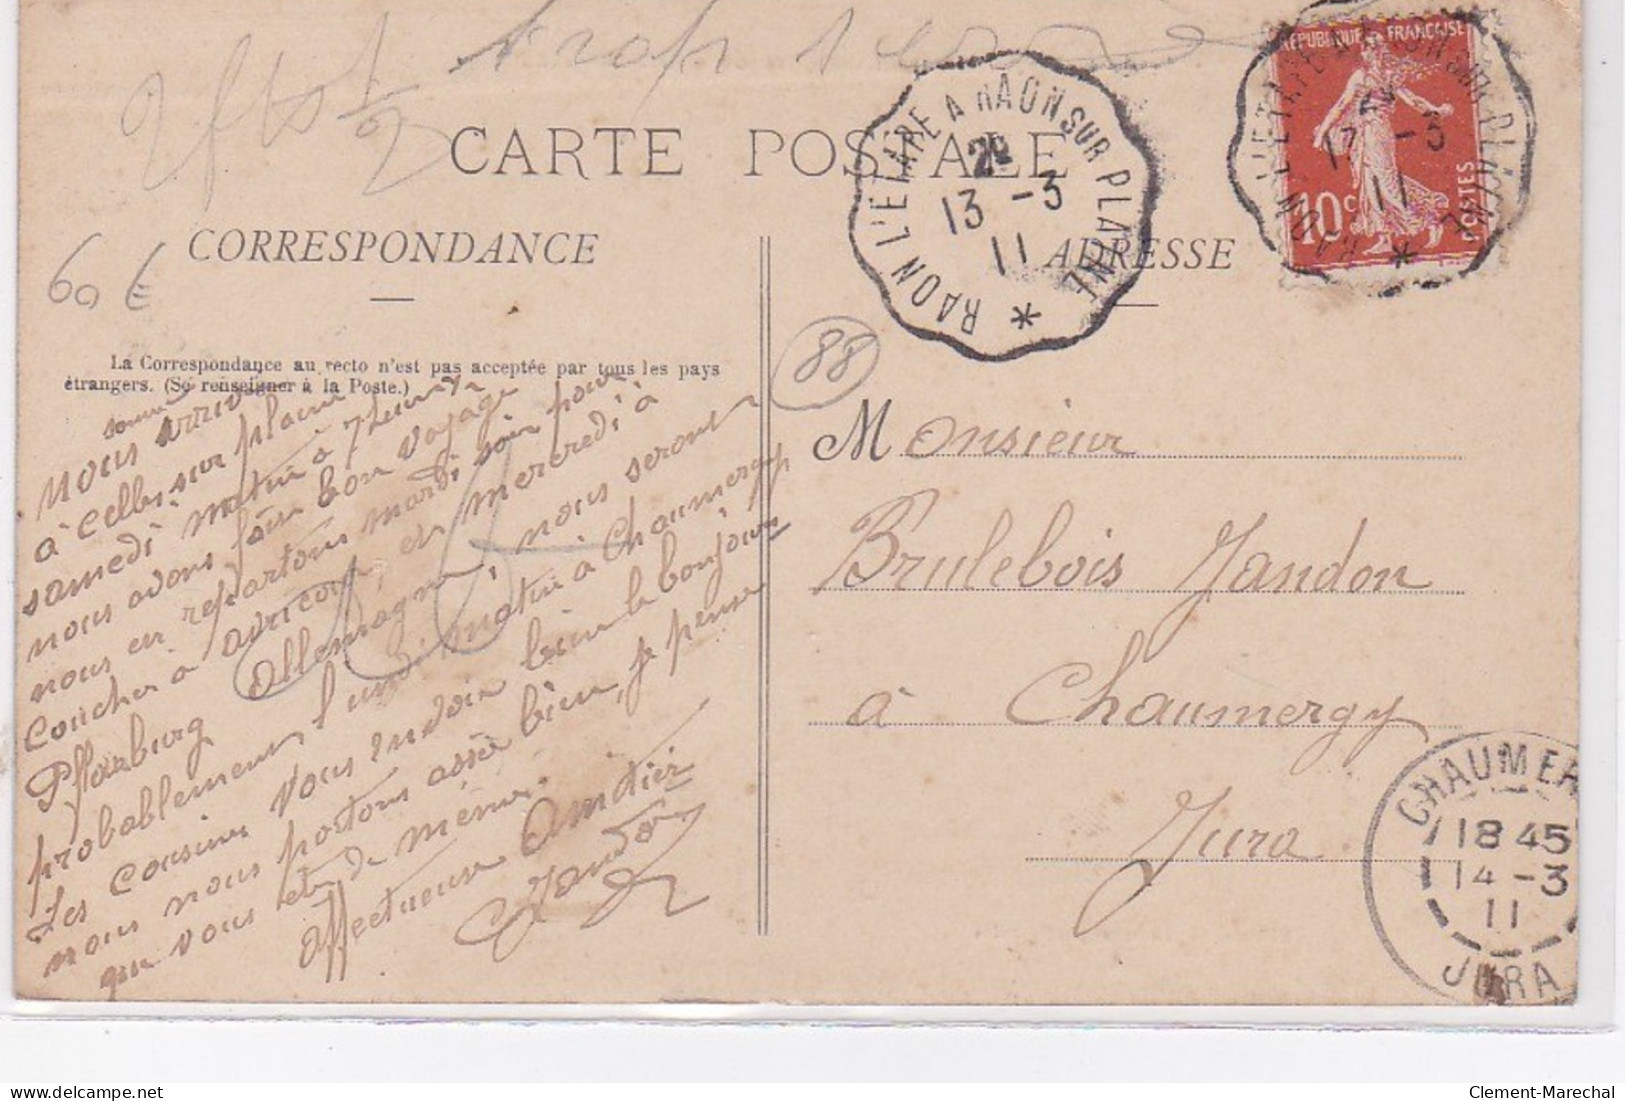 trop 1
CARTE POSTALE
CORRESPONDANCE
ADRESSE
60 €
88
La Correspondance au recto n'est pas acceptée par tous les pays
étrangers. (Se renseigner à la Poste.)
sommes
nous arrivé
à Celles sur plaine
samedi matin à 7 heures
nous avons fait bon voyage
nous en repartons mardi soir pour
coucher à avricourt, et mercredi à
Pfalzburg Allemagne, nous serons
probablement lundi matin à Chaumergy
Les cousins vous envoie bien le bonjour
nous nous portons assez bien, je pense
que vous êtes de même.
Affectueuse Amitié
Jandon
Monsieur
Brulebois Jandon
à Chaumergy
Jura
RAON L'ETAPE A RAON SUR PLAINE
2º
13 -3
11
*
REPUBLIQUE FRANÇAISE
10c
POSTES
RAON L'ETAPE A RAON SUR PLAINE
13 -3
11
*
CHAUMER
18 45
14 -3
11
JURA
Clement-Marechal